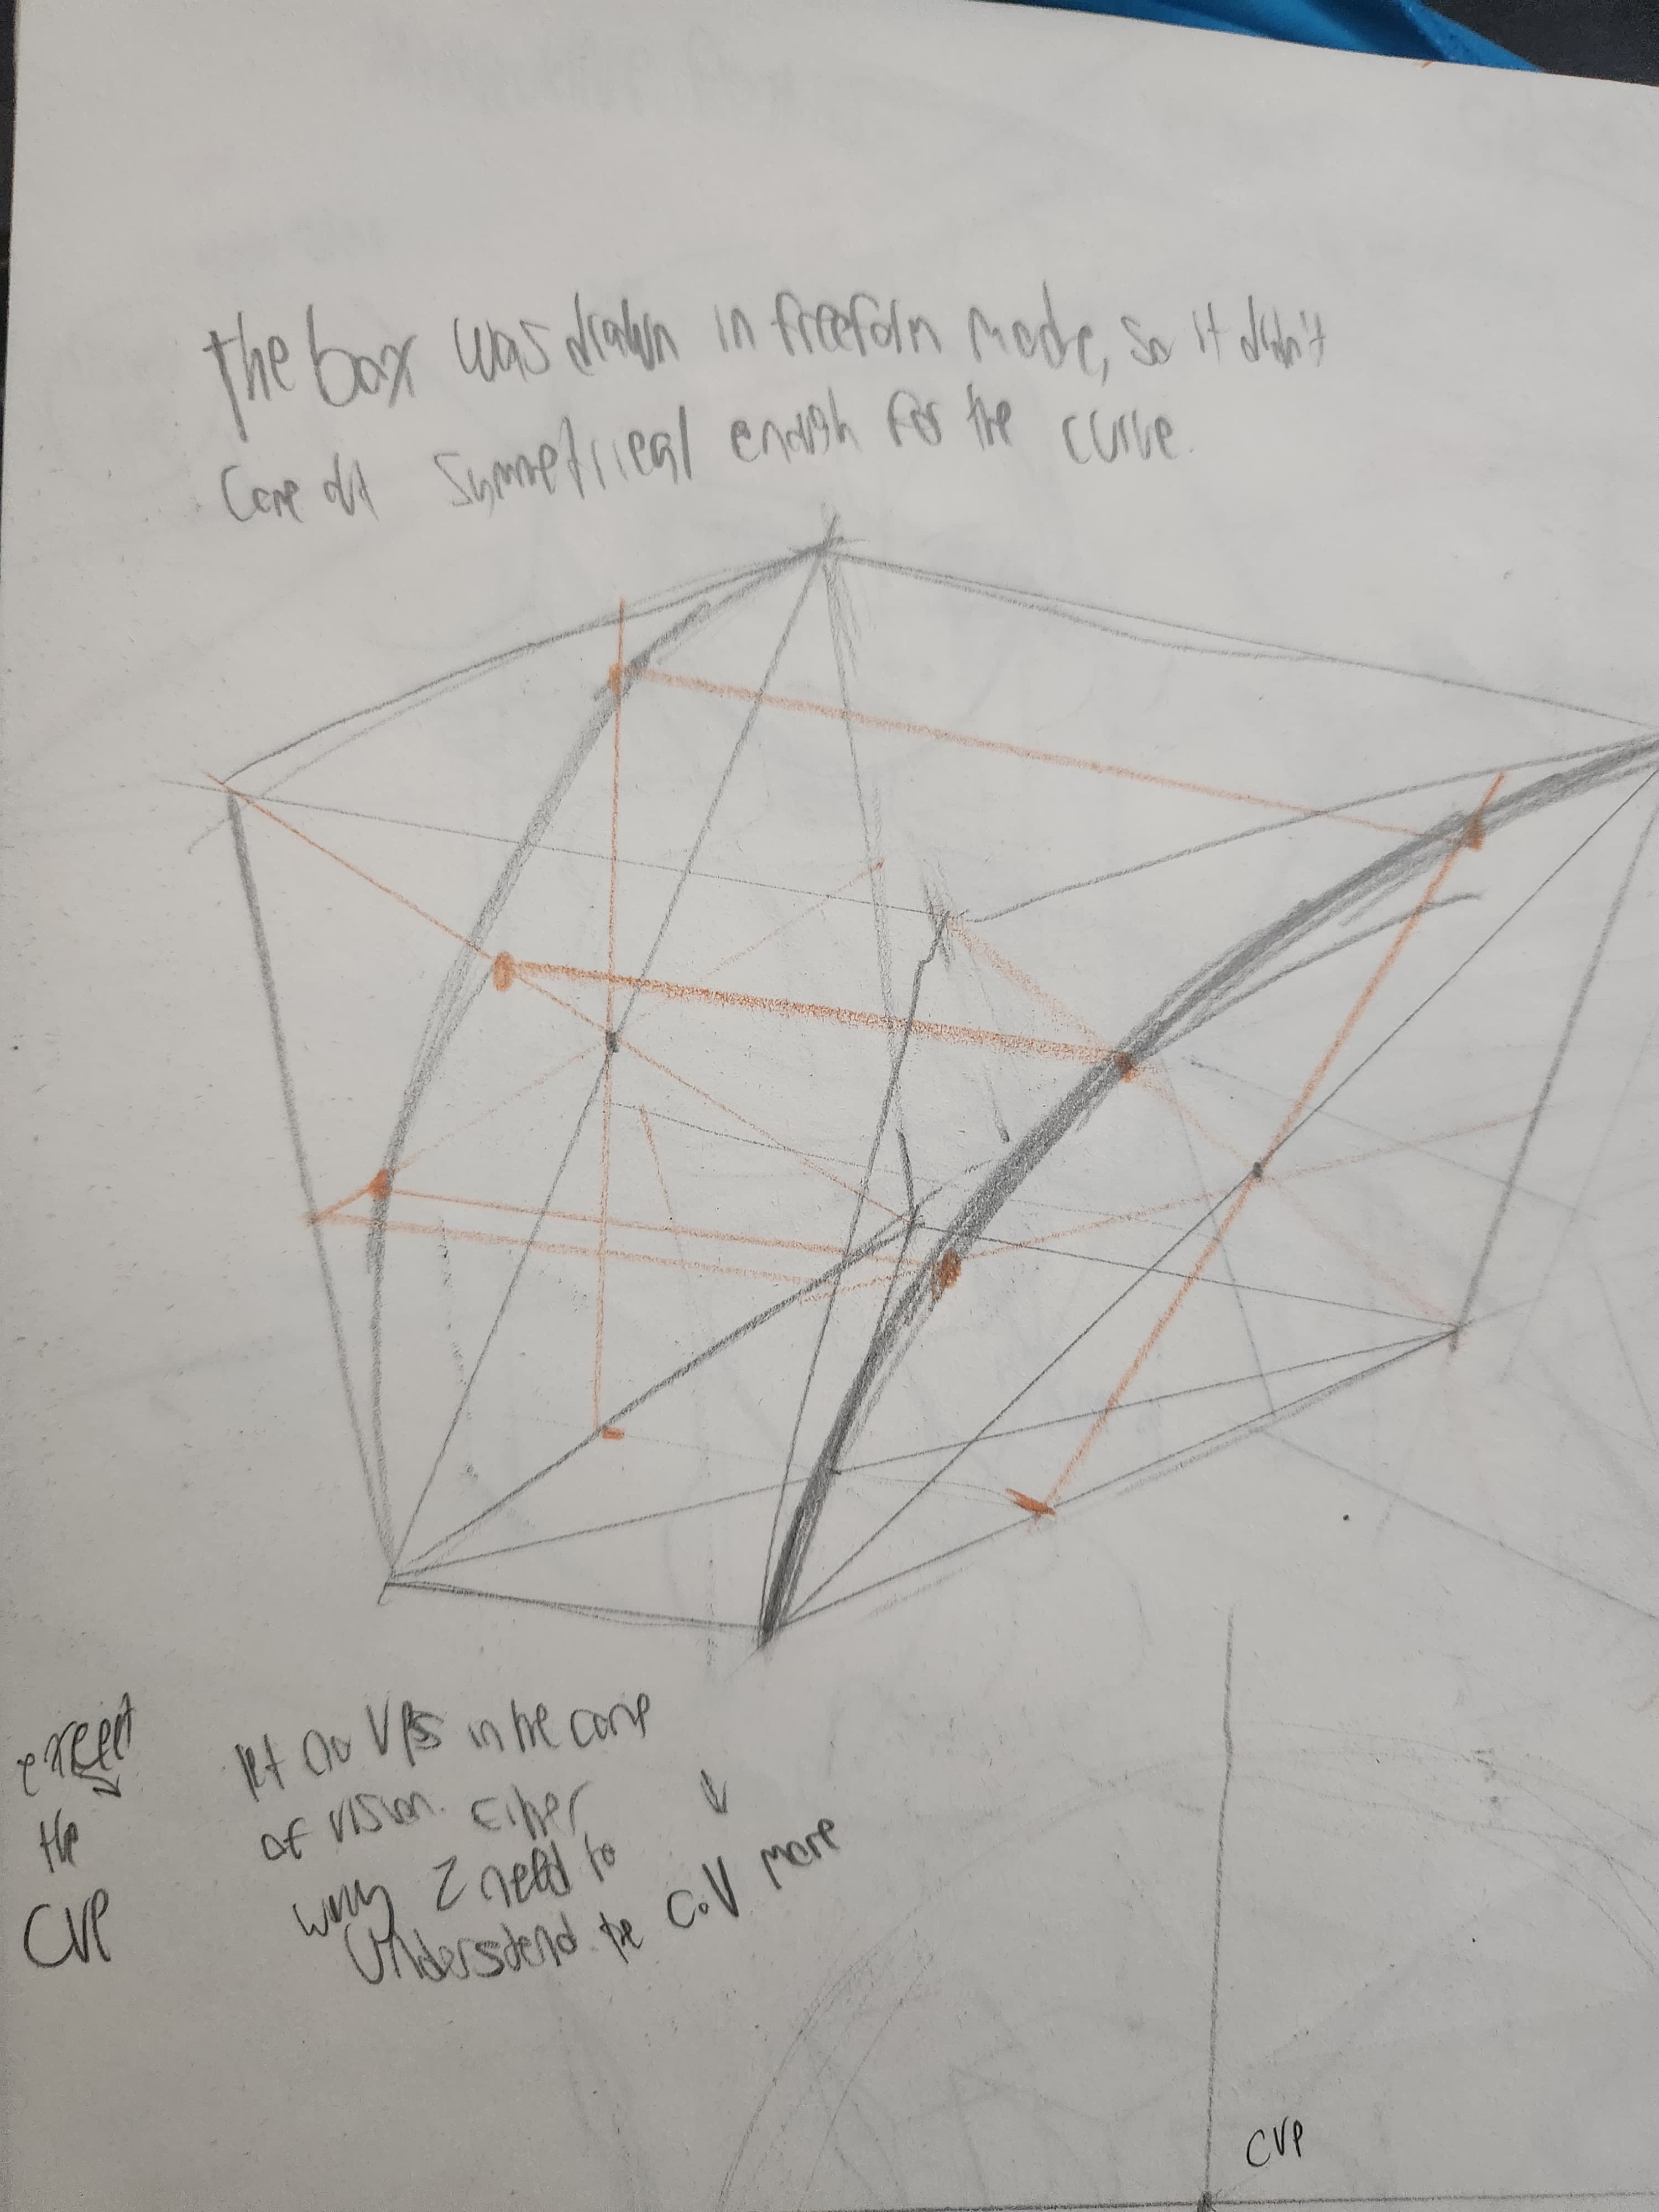 the box was drawn in freeform mode, so it didn't
come out symmetrical enough for the curve.
except
the
CVP
let no VPs in the cone
of vision. either
way I need to
Understand the CoV more
CVP